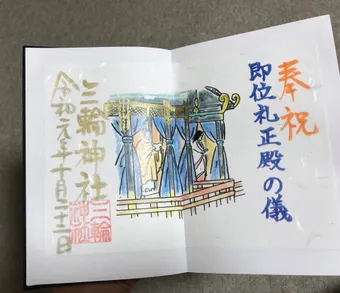 奉祝
即位礼正殿の儀
三輪神社
令和元年十月二十二日
三輪神社